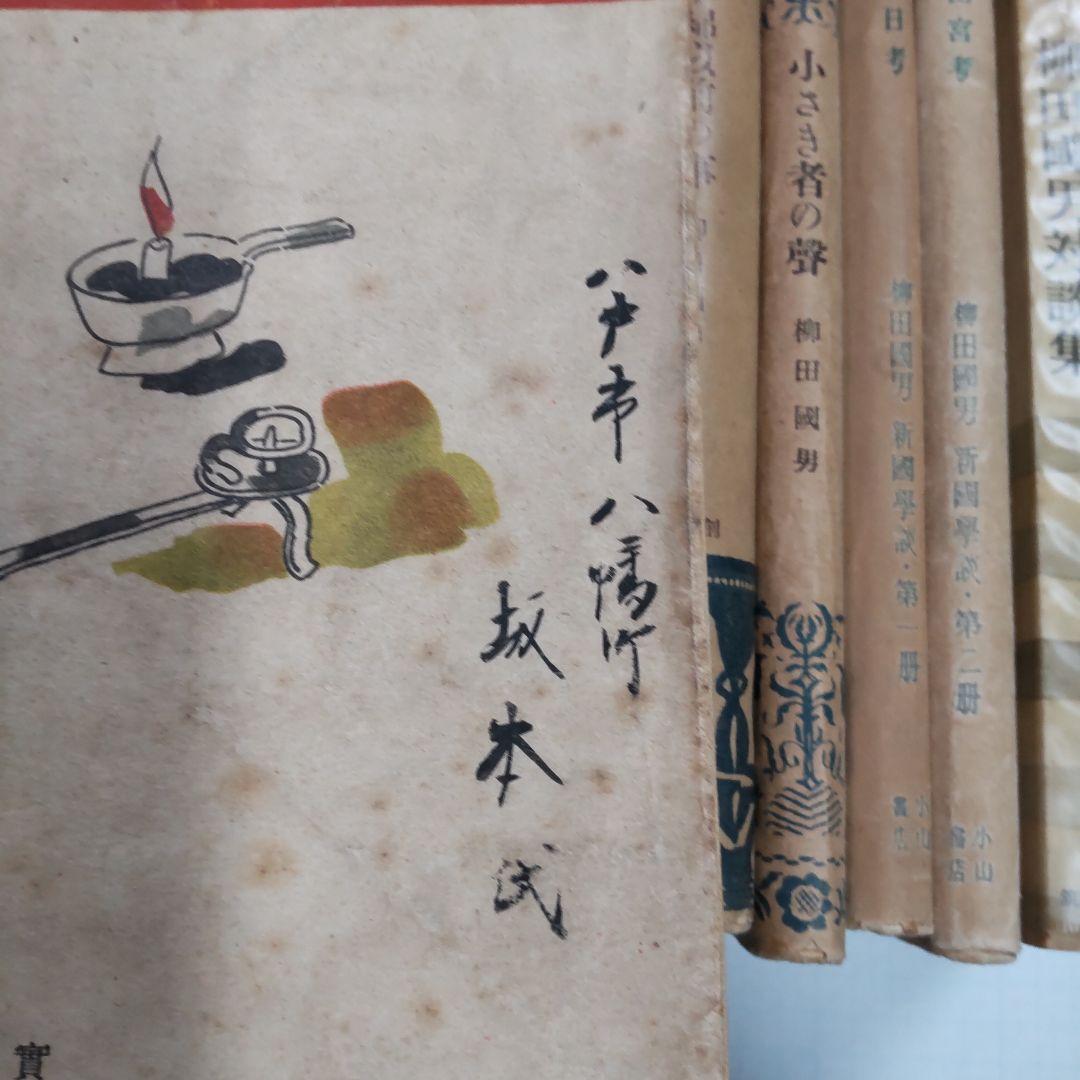 八戸市八幡町
坂本氏
實
小さき者の聲 柳田國男
日考 柳田國男 新國學談・第一册 小山書店
宮考 柳田國男 新國學談・第二册 小山書店
柳田國男対談集